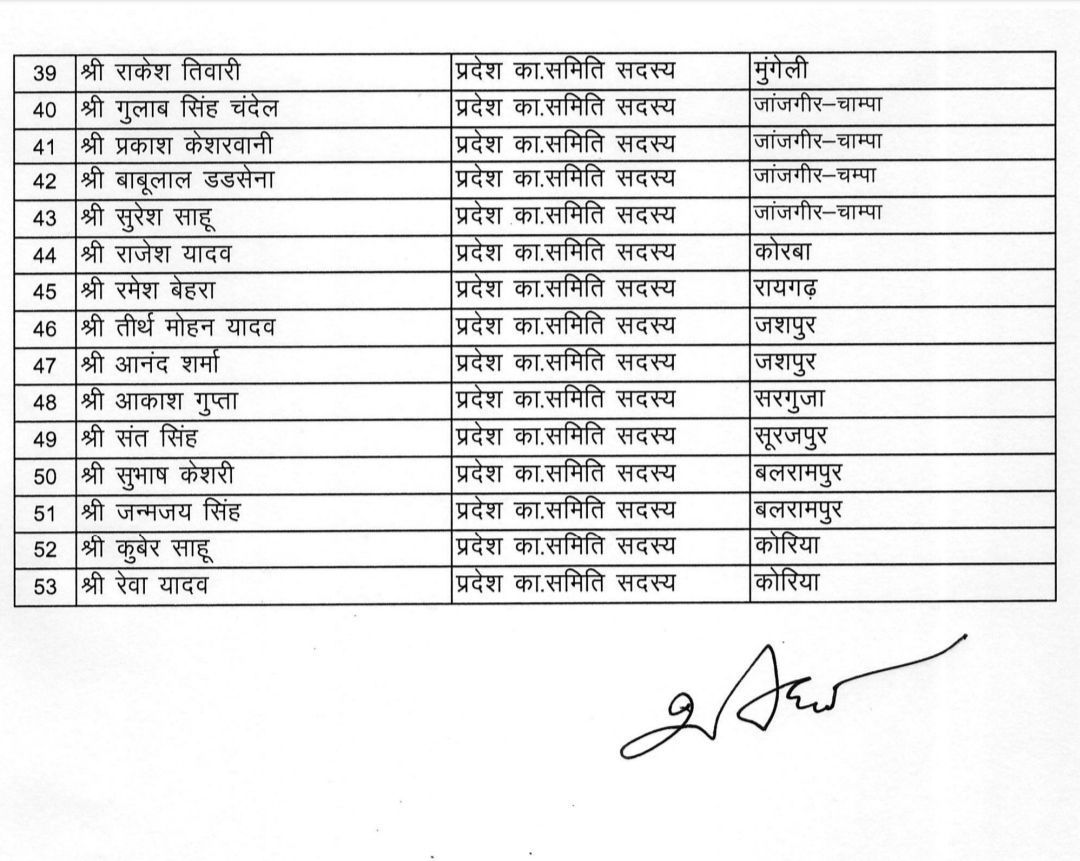 39 श्री राकेश तिवारी प्रदेश का.समिति सदस्य मुंगेली
40 श्री गुलाब सिंह चंदेल प्रदेश का.समिति सदस्य जांजगीर–चाम्पा
41 श्री प्रकाश केशरवानी प्रदेश का.समिति सदस्य जांजगीर–चाम्पा
42 श्री बाबूलाल डडसेना प्रदेश का.समिति सदस्य जांजगीर–चम्पा
43 श्री सुरेश साहू प्रदेश का.समिति सदस्य जांजगीर–चाम्पा
44 श्री राजेश यादव प्रदेश का.समिति सदस्य कोरबा
45 श्री रमेश बेहरा प्रदेश का.समिति सदस्य रायगढ़
46 श्री तीर्थ मोहन यादव प्रदेश का.समिति सदस्य जशपुर
47 श्री आनंद शर्मा प्रदेश का.समिति सदस्य जशपुर
48 श्री आकाश गुप्ता प्रदेश का.समिति सदस्य सरगुजा
49 श्री संत सिंह प्रदेश का.समिति सदस्य सूरजपुर
50 श्री सुभाष केशरी प्रदेश का.समिति सदस्य बलरामपुर
51 श्री जन्मजय सिंह प्रदेश का.समिति सदस्य बलरामपुर
52 श्री कुबेर साहू प्रदेश का.समिति सदस्य कोरिया
53 श्री रेवा यादव प्रदेश का.समिति सदस्य कोरिया